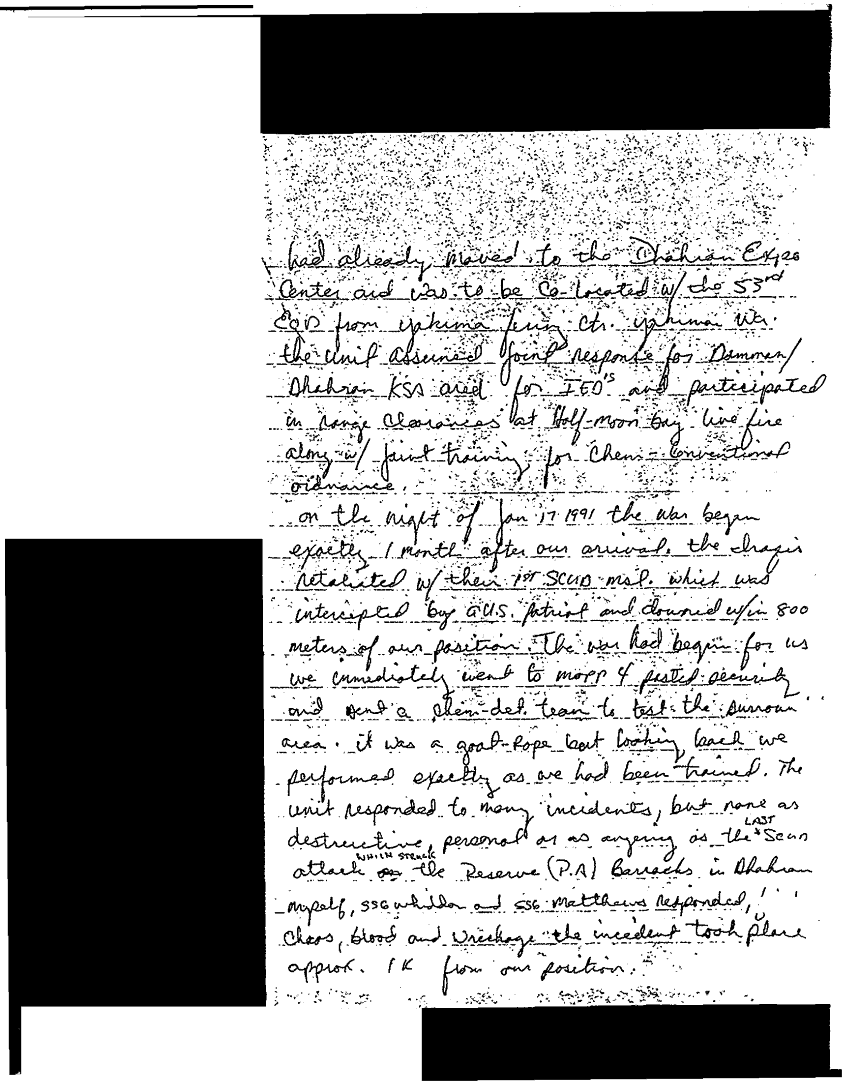 had already moved to the Dhahran Expo
Center and was to be Co-located w/ the 53rd
EOD from yakima firing Ctr. yakima Wa.
the unit assumed joint response for Dammam/
Dhahran KSA area for IED's and participated
in range Clearances at Half-moon bay live fire
along w/ joint training for Chem-Conventional
ordnance.
on the night of Jan 17 1991 the war began
exactly 1 month after our arrival. the Iraqis
retaliated w/ their 1st SCUD msl. which was
intercepted by a U.S. Patriot and downed w/in 800
meters of our position. The war had begun for us
we immediately went to mopp 4 posted security
and sent a chem-det. team to test the surroun
area. it was a goat-Rope but looking back we
performed exactly as we had been trained. The
unit responded to many incidents, but none as
destructive, personal or as angering as the LAST Scud
attack WHICH STRUCK the Reserve (P.A) Barracks in Dhahran
myself, SSG and SSG Matthews responded,
Chaos, blood and Wreckage the incident took place
approx. 1K from our position.